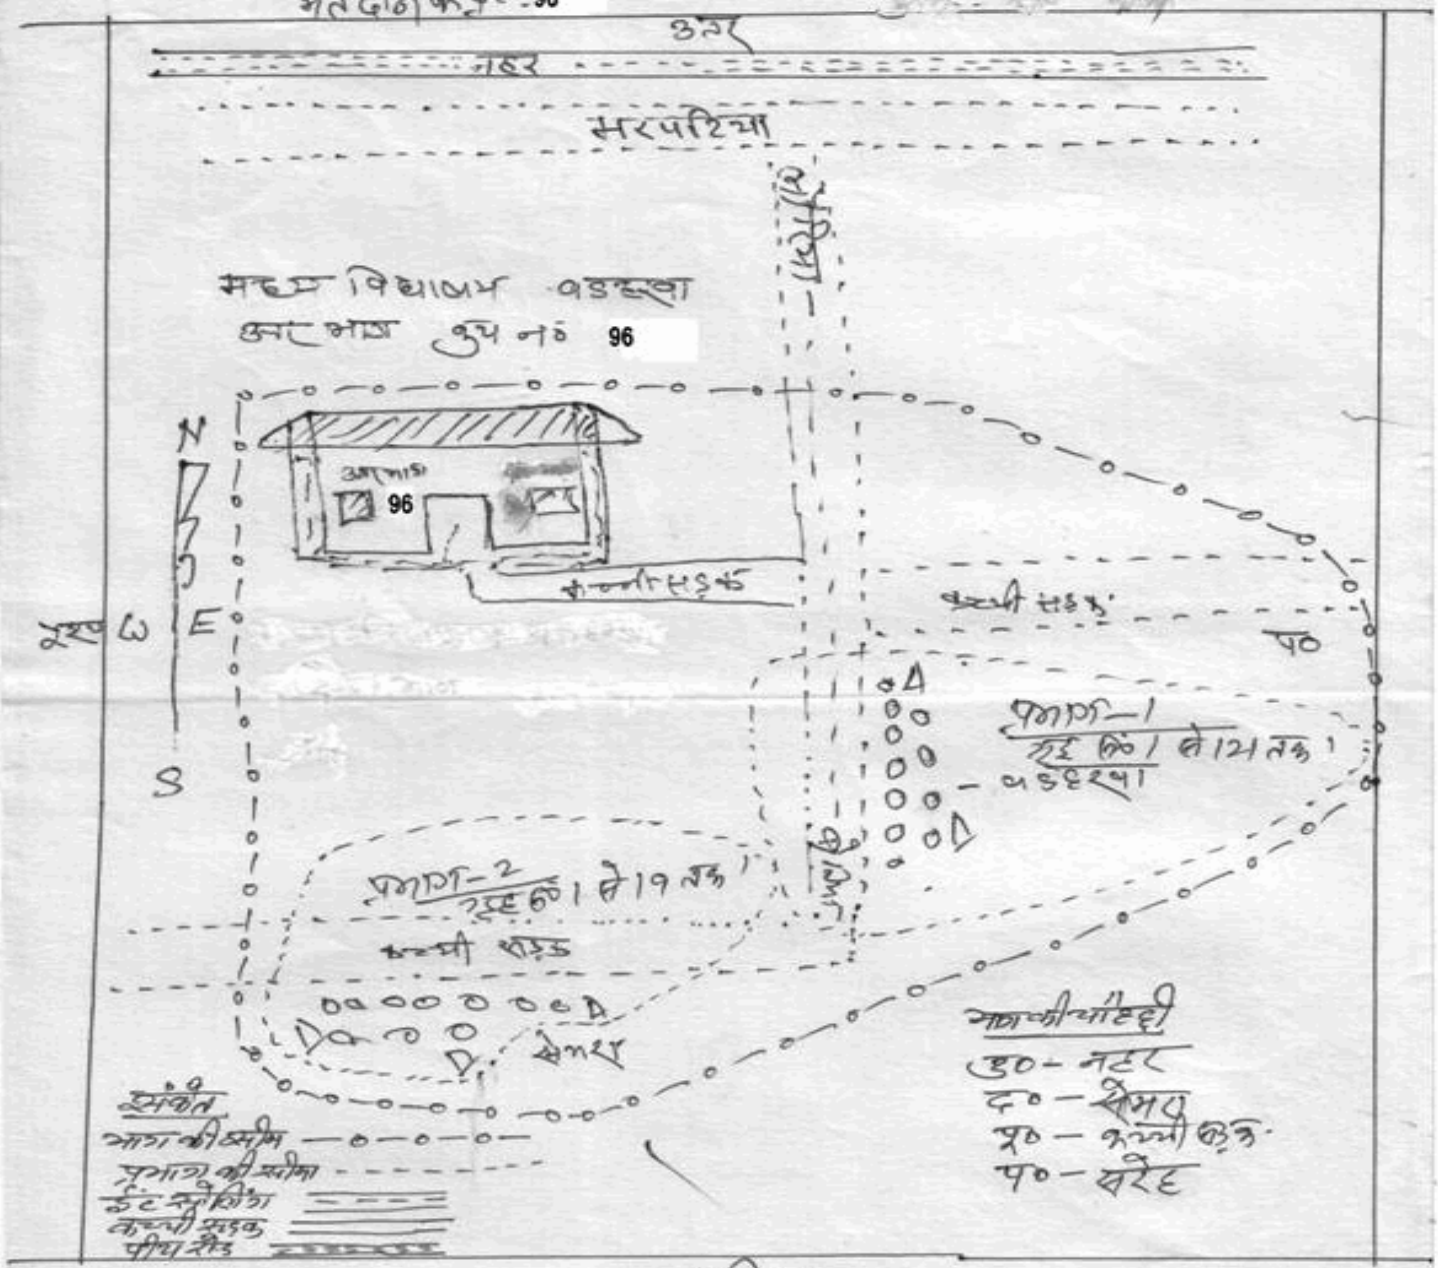 मतदान केन्द्र - 96
उत्तर
नहर
मरपटिया
मध्य विद्यालय बडहरवा
उतर भाग बुथ नं० 96
N
उतर भाग
96
कच्ची सड़क
कच्ची सड़क
W E
प०
S
प्रभाग-1
गृह सं० 1 से 121 तक
बडहरवा
प्रभाग-2
गृह सं० 1 से 19 तक
कच्ची सड़क
सेमरा
भाग की चौहद्दी
उ० - नहर
द० - सेमरा
पू० - कच्ची सड़क
प० - सरेह
संकेत
भाग की सीमा
प्रभाग की सीमा
ईंट सोलिंग
कच्ची सड़क
पीच रोड